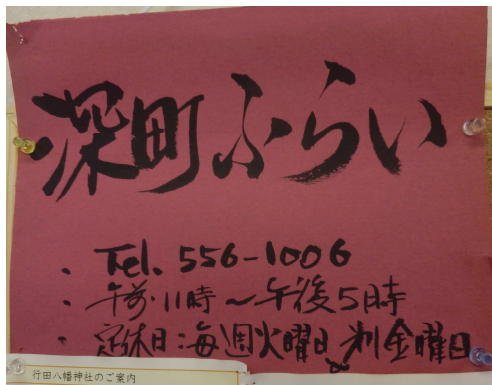 深町ふらい
・Tel. 556-1006
・午前・11時～午後5時
・定休日：毎週火曜日 金曜日
行田八幡神社のご案内